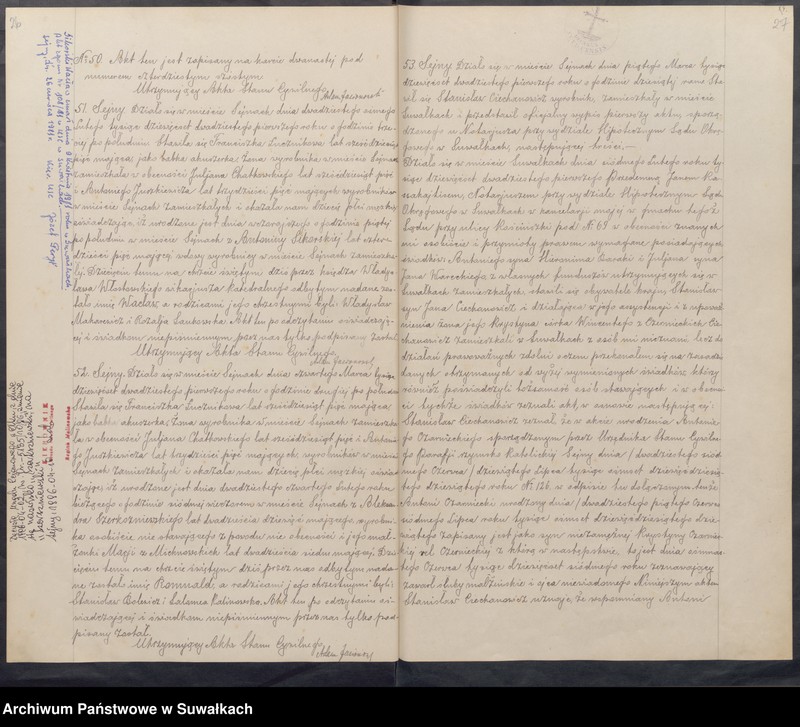 26
№ 50. Akt ten jest zapisany na karcie dwunastej pod
numerem czterdziestym szóstym
Utrzymujący Akta Stanu Cywilnego
51. Sejny. Działo się w mieście Sejnach dnia dwudziestego ósmego
Lutego tysiąc dziewięćset dwudziestego pierwszego roku o godzinie trze-
ciej po południu. Stawiła się Franciszka Łucznikowa lat sześćdziesiąt
pięć mająca jako babka akuszerka żona wyrobnika w mieście Sejnach
zamieszkała w obecności Juljana Chatkowskiego lat sześćdziesiąt pięć
i Antoniego Juszkiewicza lat trzydzieści pięć mających wyrobników
w mieście Sejnach zamieszkałych i okazała nam dziecię płci męskiej
oświadczając, iż urodzone jest dnia wczorajszego o godzinie piątej
po południu w mieście Sejnach z Antoniny Sikorskiej lat czter-
dzieści pięć mającej wdowy wyrobnicy w mieście Sejnach zamieszka-
łej. Dziecięciu temu na chrzcie świętym dziś przez księdza Włady-
sława Włostowskiego wikarjusza Katedralnego odbytym nadane zos-
tało imię Wacław a rodzicami jego chrzestnymi byli: Władysław
Makarewicz i Rozalja Sankowska. Akt ten po odczytaniu oświadczają-
cej i świadkom niepiśmiennym przez nas tylko podpisany został.
Utrzymujący Akta Stanu Cywilnego
52. Sejny. Działo się w mieście Sejnach dnia czwartego Marca tysiąc
dziewięćset dwudziestego pierwszego roku o godzinie drugiej po południu
Stawiła się Franciszka Łucznikowa lat sześćdziesiąt pięć mająca
jako babka akuszerka żona wyrobnika w mieście Sejnach zamieszka-
ła w obecności Juljana Chatkowskiego lat sześćdziesiąt pięć i Antonie-
go Juszkiewicza lat trzydzieści pięć mających wyrobników w mieście
Sejnach zamieszkałych i okazała nam dziecię płci męskiej oświad-
czając, iż urodzone jest dnia dwudziestego czwartego Lutego roku
bieżącego o godzinie siódmej wieczorem w mieście Sejnach z Aleksan-
dra lat dwadzieścia dziewięć mającego, wyrobni-
ka osobiście nie stawającego z powodu nie obecności i jego mał-
żonki Marji z Michnowskich lat dwadzieścia siedm mającej. Dzie-
cięciu temu na chrzcie świętym dziś przez nas odbytym nada-
ne zostało imię Romuald a rodzicami jego chrzestnymi byli:
Stanisław i Salomea Kalinowska. Akt ten po odczytaniu oś-
wiadczającej i świadkom niepiśmiennym przez nas tylko pod-
pisany został.
Utrzymujący Akta Stanu Cywilnego
27
53. Sejny. Działo się w mieście Sejnach dnia piątego Marca tysiąc
dziewięćset dwudziestego pierwszego roku o godzinie dziesiątej rano. Sta-
wił się Stanisław Ciechanowicz wyrobnik, zamieszkały w mieście
Suwałkach i przedstawił oficjalny wypis pierwszy aktu, sporzą-
dzonego u Notarjusza przy wydziale Hipotecznym Sądu Okrę-
gowego w Suwałkach, następującej treści. —
Działo się w mieście Suwałkach dnia siódmego Lutego roku ty-
siąc dziewięćset dwudziestego pierwszego. Przedemną Janem
Notarjuszem przy wydziale Hipotecznym Sądu
Okręgowego w Suwałkach w kancelarji mojej w gmachu tegoż
Sądu przy ulicy Kościuszki pod № 69 w obecności znanych
mi osobiście i przymioty prawem wymagane posiadających
świadków: Antoniego syna Hieronima i Juljana syna
Jana z własnych funduszów utrzymujących się w
Suwałkach zamieszkałych, stawili się obywatele kraju Stanisław
syn Jana Ciechanowicz i działająca w jego assystencji i z upoważ-
nienia żona jego Krystyna córka Wincentego z Czarnieckich Cie-
chanowicz zamieszkali w Suwałkach z osób mi nieznani lecz do
działań prawozdolnych zdolni o czem przekonałem się na zasadzie
danych otrzymanych od wyżej wymienionych świadków, którzy
również poświadczyli tożsamość osób stawających i w obecnoś-
ci tychże świadków zeznali akt, w osnowie następującej:
Stanisław Ciechanowicz zeznał, że w akcie urodzenia Antonie-
go Czarnieckiego sporządzonym przez Urzędnika Stanu Cywilne-
go Parafji rzymsko Katolickiej Sejny dnia / dwudziestego siód-
mego Czerwca / dziewiątego Lipca tysiąc ośmset dziewięćdziesią-
tego dziewiątego roku № 126 w odpisie tu dołączonym, tenże
Antoni Czarniecki urodzony dnia / dwudziestego piątego Czerwca
siódmego Lipca roku tysiąc ośmset dziewięćdziesiątego dzie-
wiątego zapisany jest jako syn niezamężnej Krystyny Czarniec-
kiej vel Czernieckiej z którą w następstwie, to jest dnia ósmnas-
tego Czerwca tysiąc dziewięćset siódmego roku zeznawający
zawarł śluby małżeńskie i ojca niewiadomego. Niniejszym aktem
Stanisław Ciechanowicz uznaje, że wspomniany Antoni
Archiwum Państwowe w Suwałkach